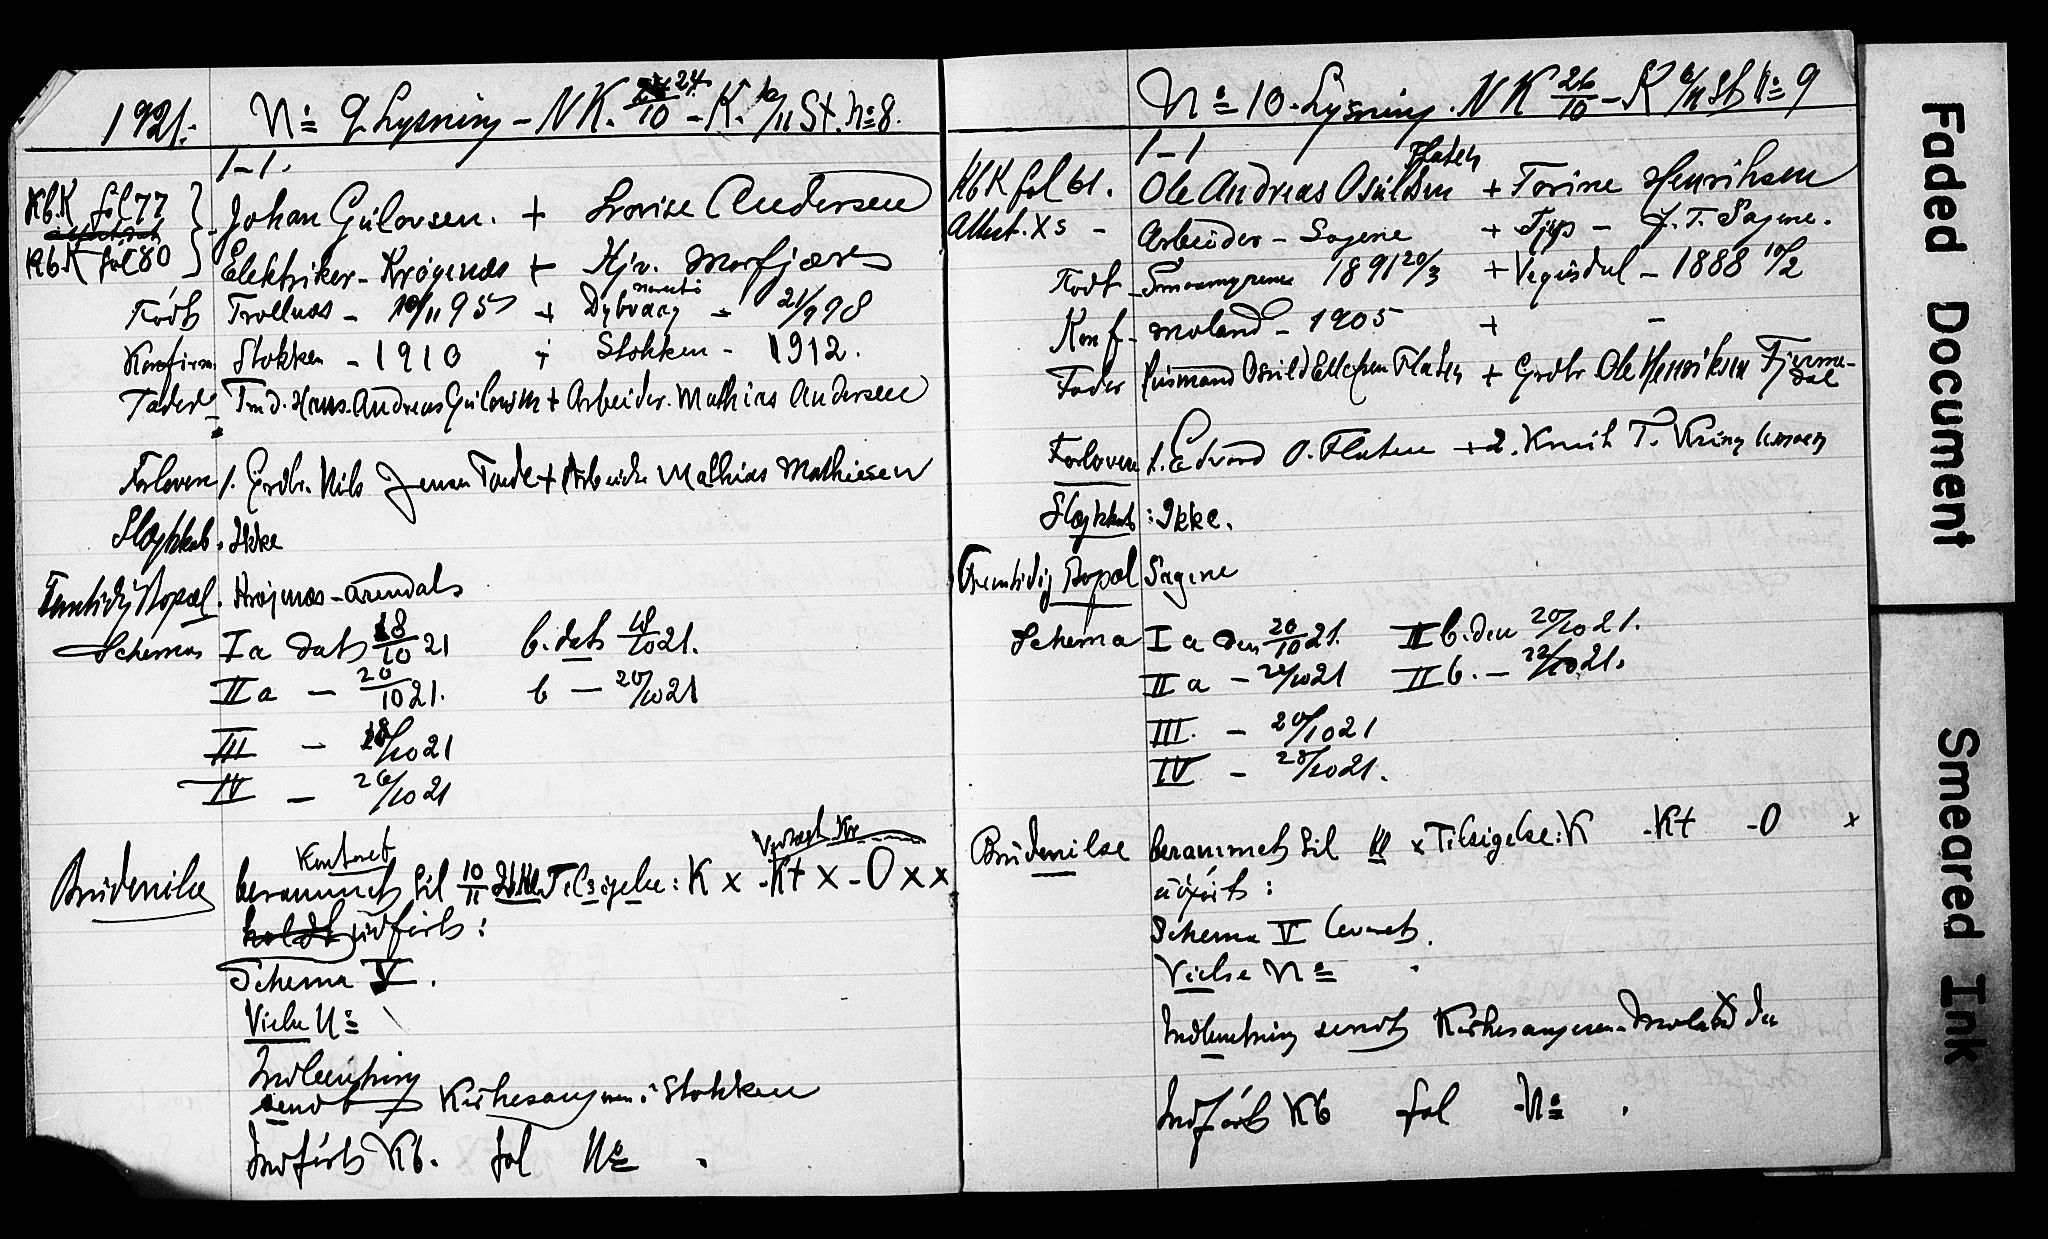 1921.
No 9. Lysning - NK. 24/10 - K. 6/11 St. No 8.
1-1.
Kb.K fol 77
Kb.K fol 80
Johan Gulovsen. + Lovise Andersen
Elektriker - Krøgenæs + Hjv. Morfjær
Født Trollnæs - 10/11 95 + Dybvaag - 21/9 98
Konfirm. Stokken - 1910 + Stokken - 1912.
Fader Tmd. Hans Andreas Gulovsen + Arbeider. Mathias Andersen
Forlovere 1. Grdbr. Nils Jensen + Arbeider Mathias Mathiesen
Slægtskab. Ikke
Fremtidig Bopæl. - Arendal
Schemas I a dat 18/10 21 b. dat 18/10 21.
II a - 20/10 21. b - 20/10 21
III - 18/10 21
IV - 26/10 21
Kontoret
Brudevielse berammet til 10/11 Tilsigelse: K x - Kt x - O x x
holdt udført:
Schema V.
Vielse No
Indberetning
sendt Kirkesangeren i Stokken
Indført Kb. fol No .
No 10. Lysning. NK 26/10 - K 6/11 St No 9
1-1
Flaten
Kb K fol 61. Ole Andreas Osuldsen + Torine Henriksen
Attest. X s - Arbeider - Sagene + Tjgp - J. T. Sagene.
Født - 1891 20/3 + Vegusdal - 1888 10/2
Konf - Moland - 1905 + -
Fader Husmand Osuld Ellefsen Flaten + Grdbr Ole Henriksen
Forlovere 1. Edvard O. Flaten + 2. Knut T.
Slægtskab : Ikke.
Fremtidig Bopæl Sagene
Schema I a den 20/10 21. II b. den 20/10 21.
II a - 22/10 21 II b. - 22/10 21.
III. - 20/10 21
IV - 28/10 21.
Brudevielse berammet til Kl x Tilsigelse: K - Kt - O x
udført:
Schema V levert.
Vielse No .
Indberetning sendt Kirkesangeren - Moland den
Indført Kb fol - No .
Faded Document
Smeared Ink